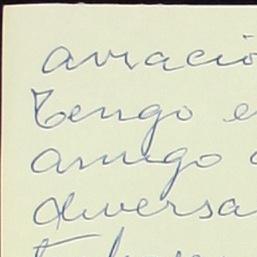 aviació
Tengo e
amigo
diversa